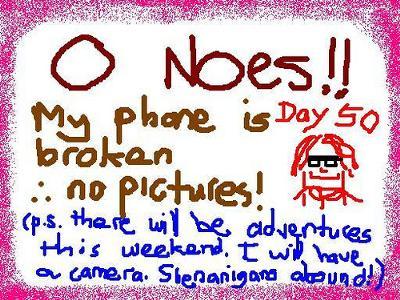 O Noes!!
My phone is Day 50
broken
∴ no pictures!
(p.s. there will be adventures
this weekend. I will have
a camera. Shenanigans abound!)